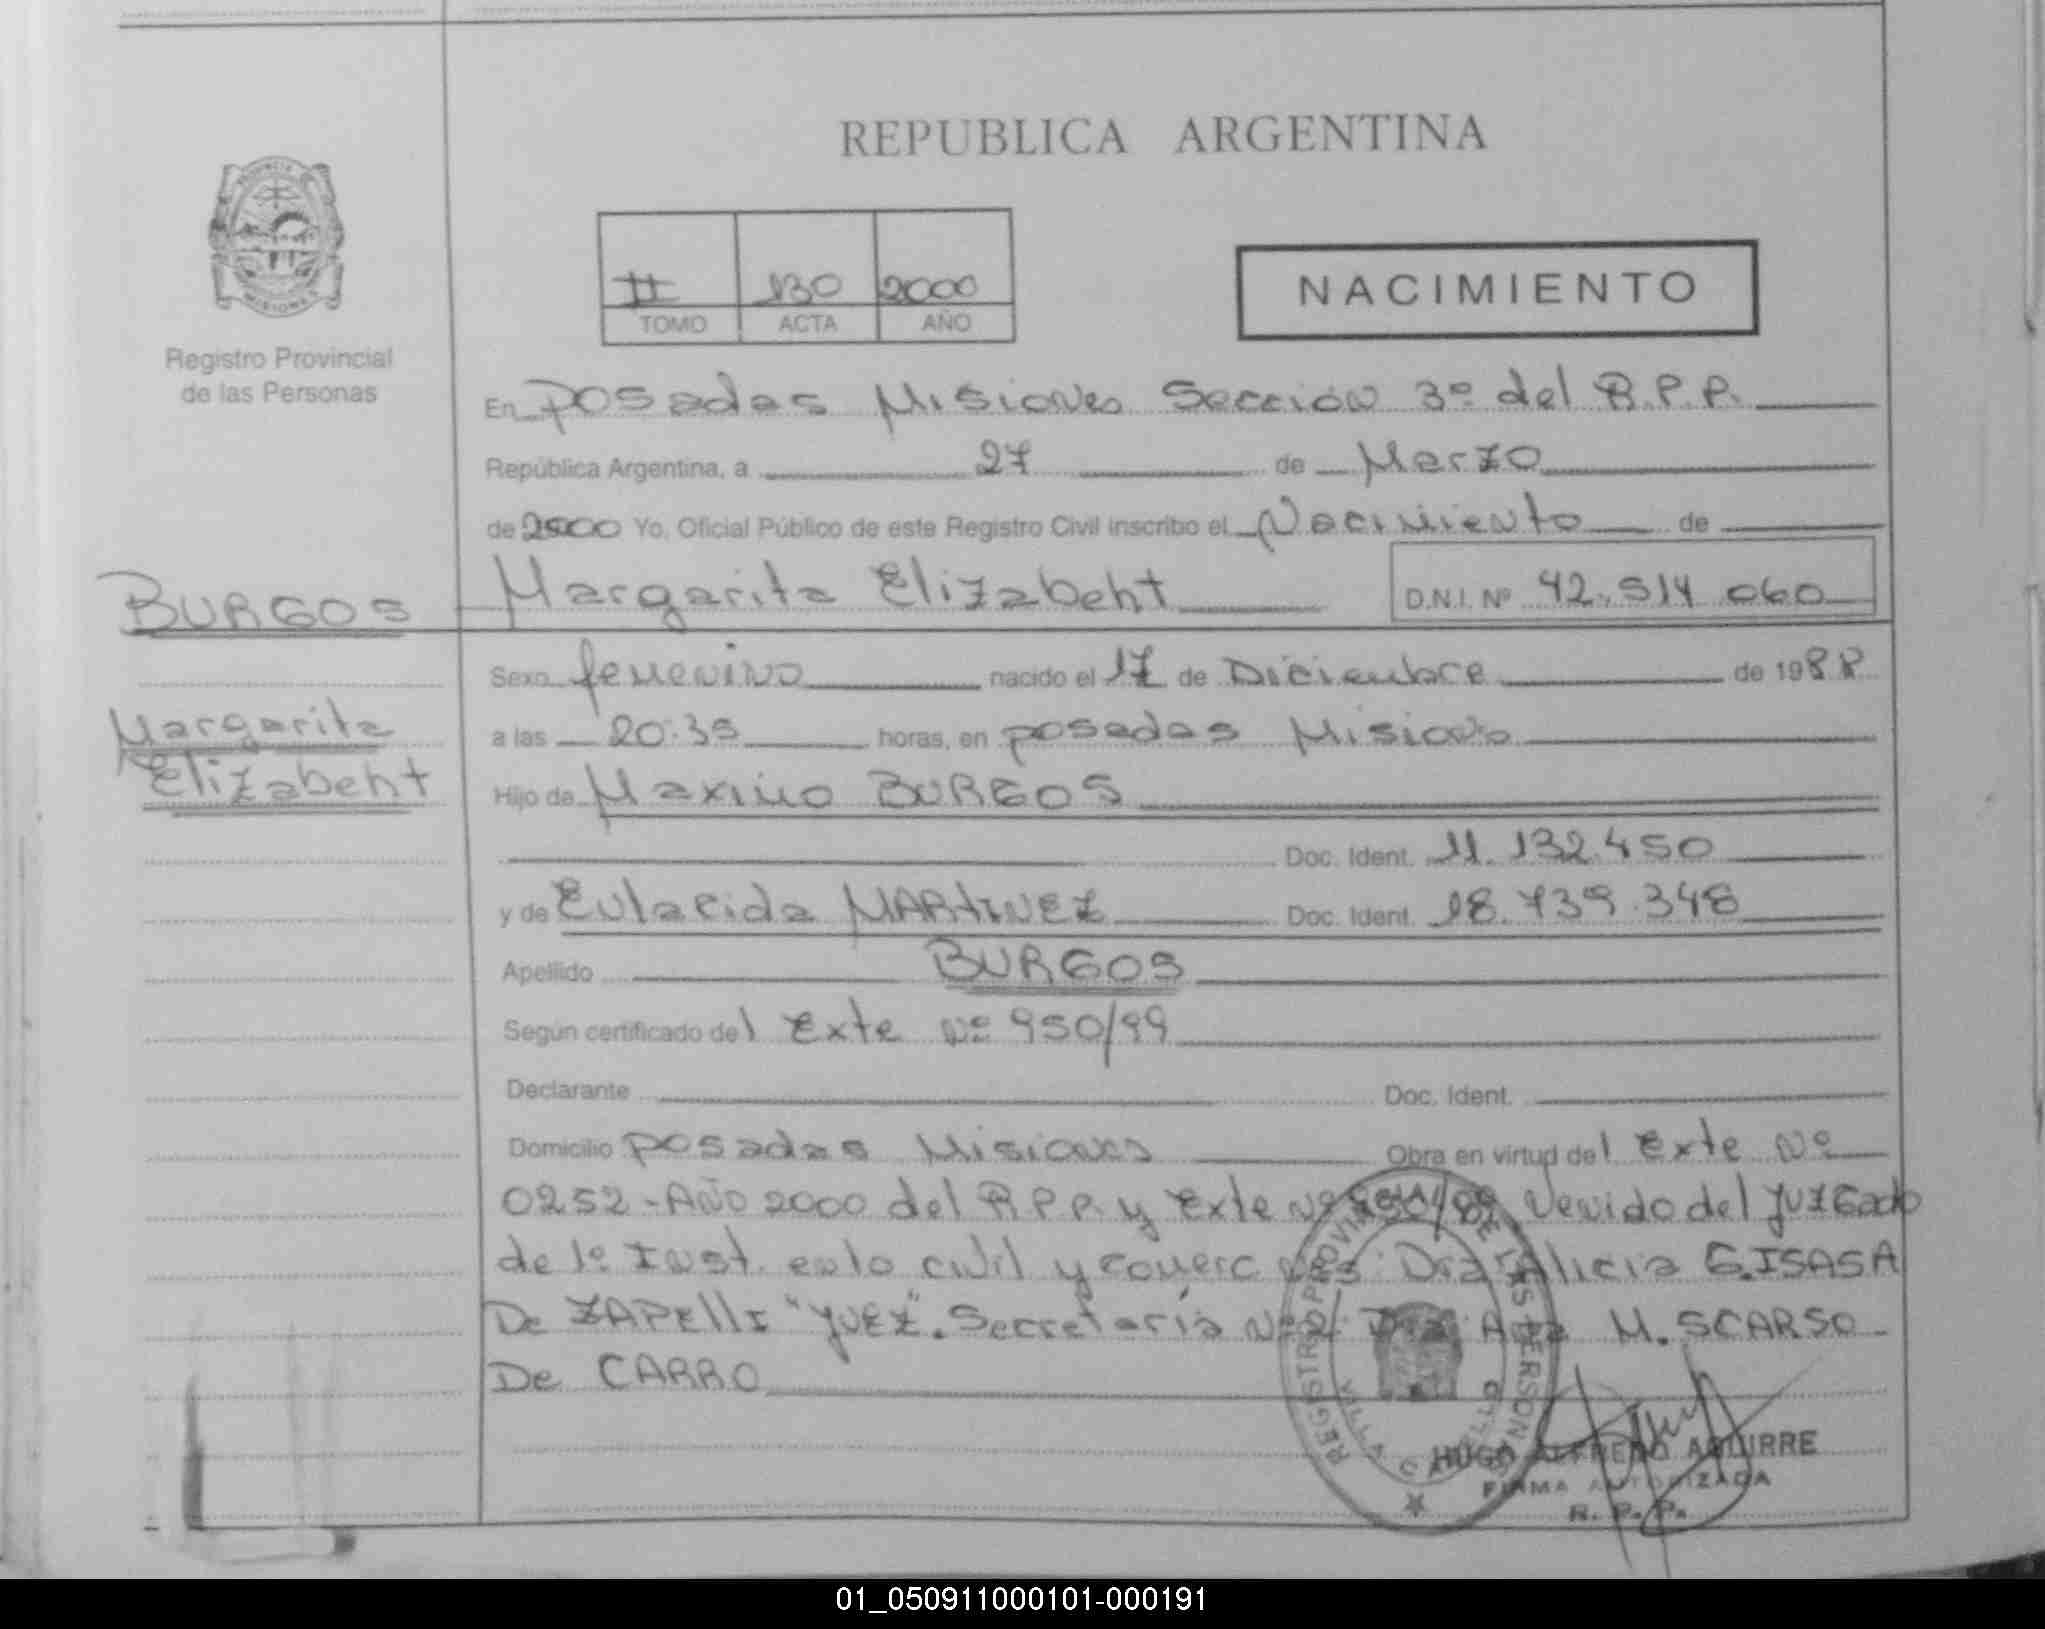 REPUBLICA ARGENTINA
PROVINCIA
MISIONES
Registro Provincial
de las Personas
II 130 2000
TOMO ACTA AÑO
NACIMIENTO
En Posadas Misiones Sección 3º del R.P.P.
República Argentina, a 27 de Marzo
de 2000 Yo, Oficial Público de este Registro Civil inscribo el Nacimiento de
BURGOS
Margarita Elizabeht D.N.I. Nº 42.514.060
Sexo femenino nacido el 17 de Diciembre de 1988
Margarita
Elizabeht
a las 20:35 horas, en posadas Misiones
Hijo de Maximo BURGOS
Doc. Ident. 11.132.450
y de Eulacida MARTINEZ Doc. Ident. 18.739.348
Apellido BURGOS
Según certificado del Exte Nº 950/99
Declarante Doc. Ident.
Domicilio posadas Misiones Obra en virtud del Exte Nº
0252-Año 2000 del R.P.P. y Exte Nº 950/99 Venido del Juzgado
de 1º Inst. en lo civil y comerc Nº3 Dra Alicia G. ISASA
De ZAPELLI "JUEZ". Secretaría Nº2 Dra Ana M. SCARSO
De CARRO
REGISTRO PROVINCIAL DE LAS PERSONAS
VILLA CABELLO
HUGO ALFREDO AGUIRRE
FIRMA AUTORIZADA
R. P. P.
01_050911000101-000191